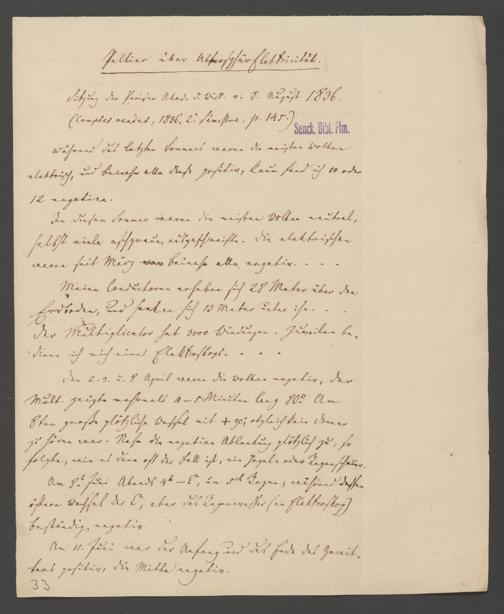 Peltier über Atmosphärelektricität.
Sitzung der Pariser Akad. d. Wiss. v. 8. August 1836.
(Comptes rendus, 1836, 2. Semestre. p. 145.)
Senck. Bibl. Ffm.
Während des letzten Sommers waren die meisten Wolken
elektrisch, und beinahe alle diese positiv, kaum fand ich 10 oder
12 negative.
In diesem Sommer waren die meisten Wolken neutral,
selbst viele aschgraue, . Die elektrischen
waren seit März beinahe alle negativ. . . .
Meine Conductoren erheben sich 28 Meter über den
Erdboden, und senken sich 13 Meter unter ihn. . .
Der Multiplicator hat 3000 Windungen. Zuweilen be-
diene ich mich eines Elektroskops. . . .
Den 2. 3. u. 8. April waren die Wolken negativ, der
Mult. zeigte mehrmals 4-5 Minuten lang 80°. Am
8ten große plötzliche Wechsel mit + 90°, obgleich kein Donner
zu hören war. Nahm die negative Ablenkung plötzlich zu, so
folgte, wie es denn oft der Fall ist, ein Hagel- oder Regenschauer.
Am Juni Abends Regen, während dessen
öftere Wechsel der E, aber das Regenwasser (im Elektroskop)
beständig negativ.
Am 11. Juni war der Anfang und das Ende des Gewit-
ters positiv, die Mitte negativ.
33